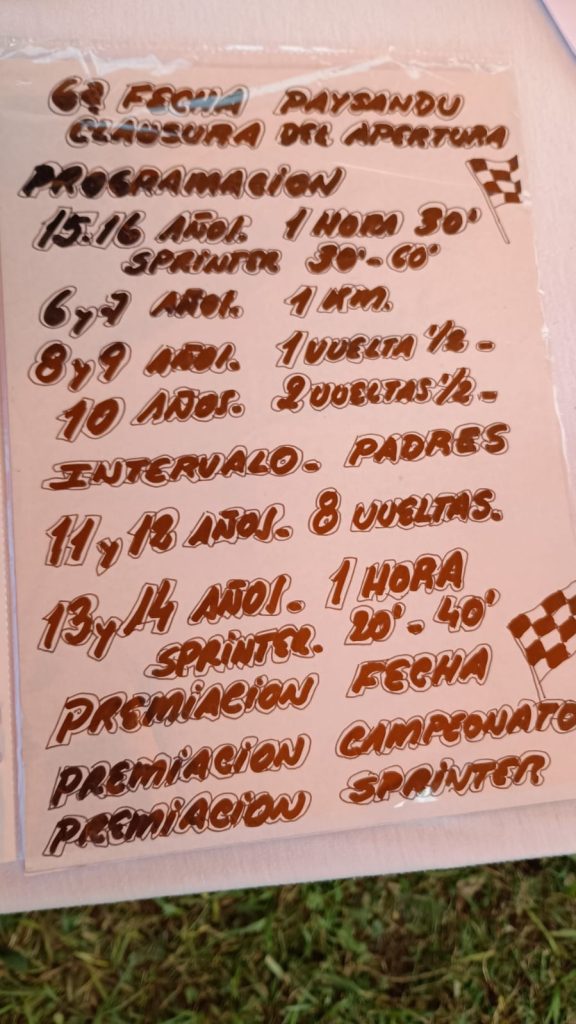 6ª FECHA PAYSANDU
CLAUZURA DEL APERTURA
PROGRAMACION
15.16 AÑOS. 1 HORA 30'
SPRINTER 30'-60'
6 y 7 AÑOS. 1 KM.
8 y 9 AÑOS. 1 VUELTA 1/2 -
10 AÑOS. 2 VUELTAS 1/2 -
INTERVALO. PADRES
11 y 12 AÑOS. 8 VUELTAS.
13 y 14 AÑOS. 1 HORA
SPRINTER. 20'- 40'
PREMIACION FECHA
PREMIACION CAMPEONATO
PREMIACION SPRINTER